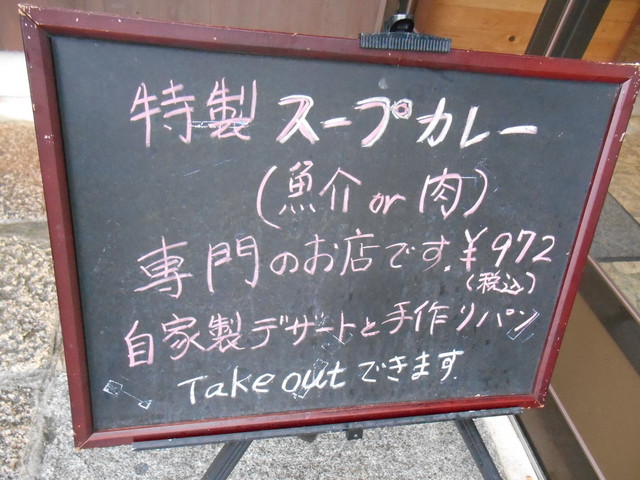 特製 スープカレー
(魚介 or 肉)
専門のお店です.¥972
(税込)
自家製デザートと手作りパン
Take out できます